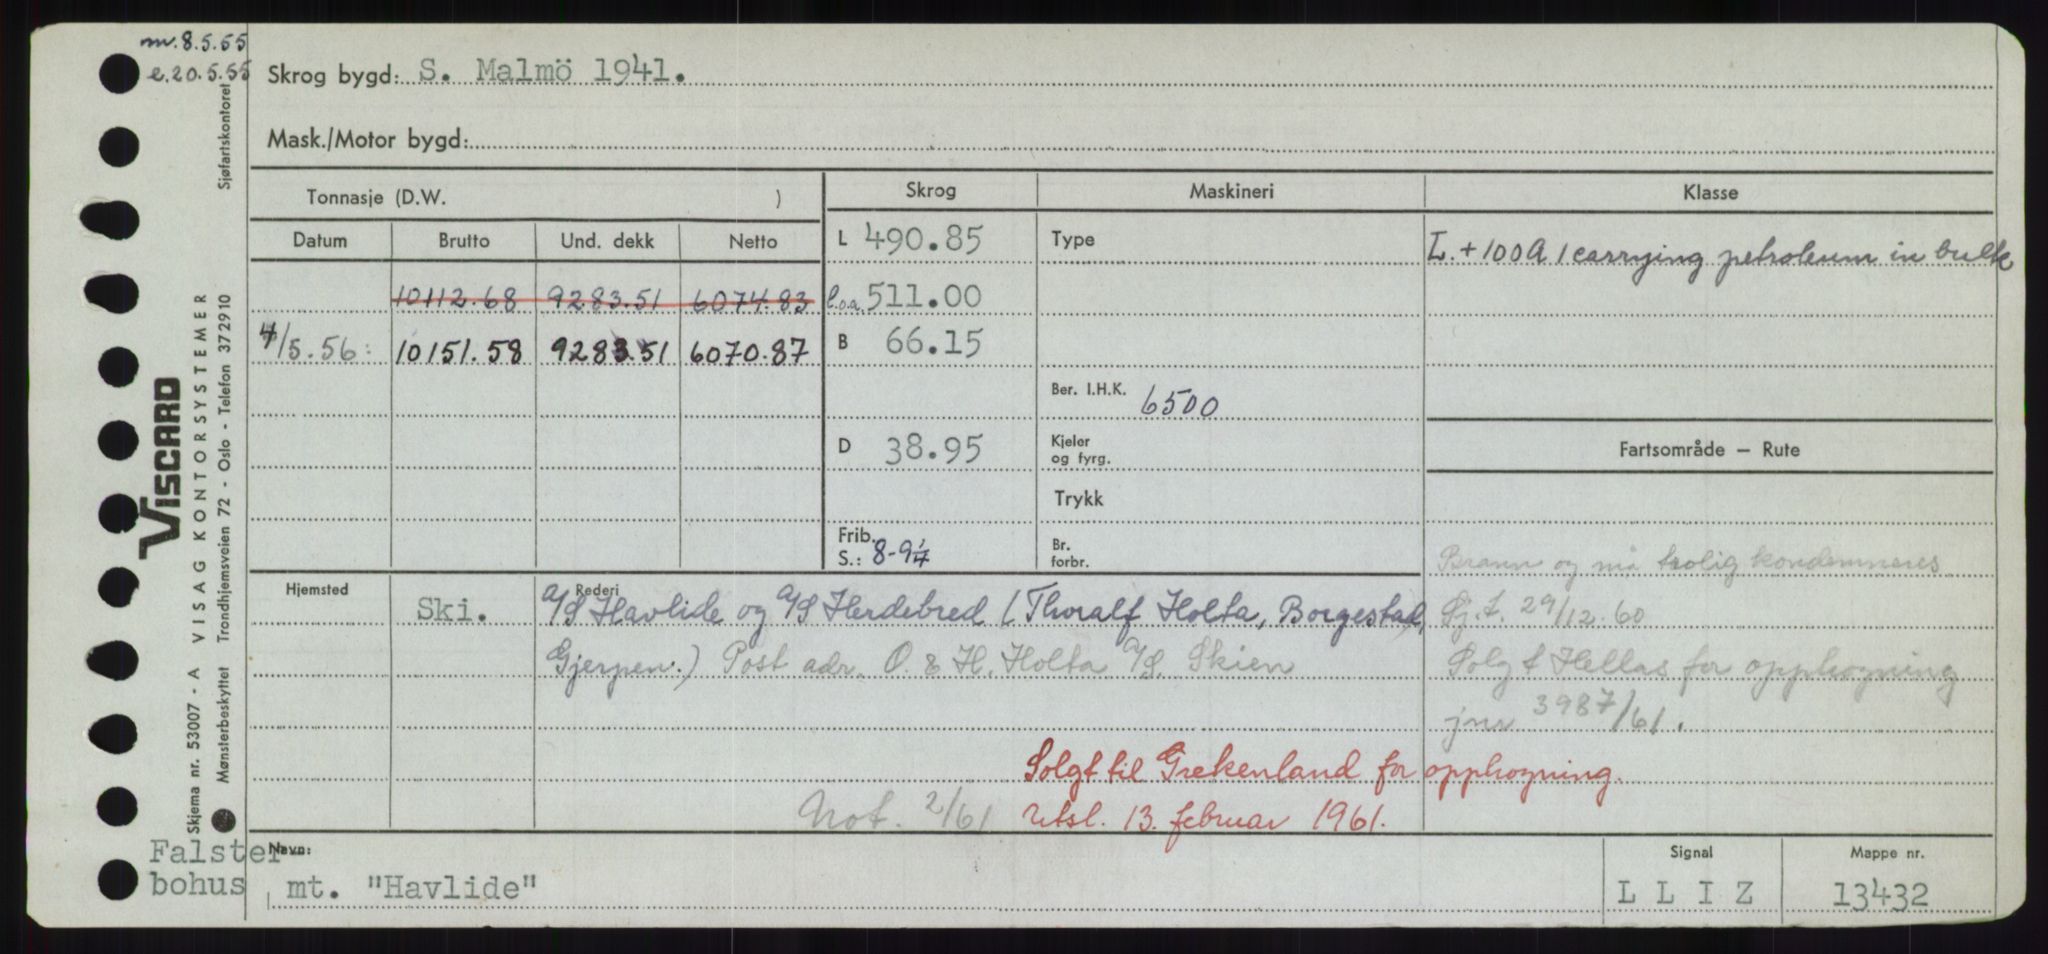 mv. 8.5.55
e. 20.5.55
Skrog bygd: S. Malmö 1941.
Mask./Motor bygd:
Tonnasje (D.W. )
Skrog
Maskineri
Klasse
Datum Brutto Und. dekk Netto
L 490.85
Type
L. +100A1 carrying petroleum in bulk
10112.68 9283.51 6074.83
l.o.a. 511.00
4/5.56: 10151.58 9283.51 6070.87
B 66.15
Ber. I.H.K. 6500
D 38.95
Kjeler
og fyrg.
Fartsområde — Rute
Trykk
Frib.
S.: 8-9¼
Br.
forbr.
Brann og må trolig kondemneres
Sj.t. 29/12.60
Solgt Hellas for opphogning
jnr 3987/61.
Hjemsted
Ski.
Rederi
A/S Havlide og A/S Herdebred (Thoralf Holta, Borgestad,
Gjerpen.) Post adr. O. & H. Holta A/S. Skien
Solgt til Grekenland for opphogning.
Not. 2/61 Utsl. 13. februar 1961.
Falster-
bohus
Navn:
mt. "Havlide"
Signal
L L I Z
Mappe nr.
13432
VISCARD
VISAG KONTORSYSTEMER
Skjema nr. 53007 - A
Mønsterbeskyttet Trondhjemsveien 72 - Oslo - Telefon 372910
Sjøfartskontoret